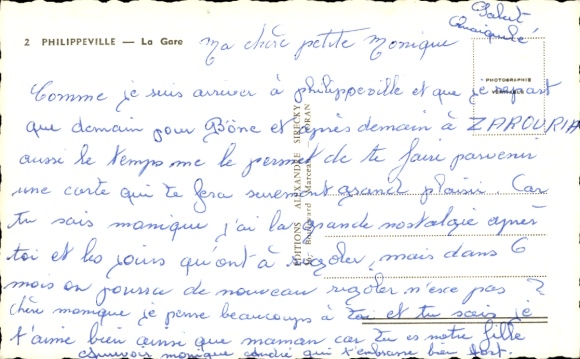 Salut
2 PHILIPPEVILLE — La Gare
Ma chère petite Monique
PHOTOGRAPHIE
VÉRITABLE
Comme je suis arriver à philippeville et que je repart
que demain pour Bône et après demain à ZAROURIA
aussi le temps me le permet de te faire parvenir
une carte qui te fera surement grand plaisir. Car
tu sais monique j'ai la grande nostalgie après
toi et les jours qu'ont à rigoler, mais dans 6
mois on pourra de nouveau rigoler n'esce pas ?
Chère monique je pense beaucoups à toi et tu sais je
t'aime bien ainsi que maman car tu es notre fille
monique qui t'embrasse bien fort
EDITIONS ALEXANDRE SIRECKY
Boulevard Marceau ORAN